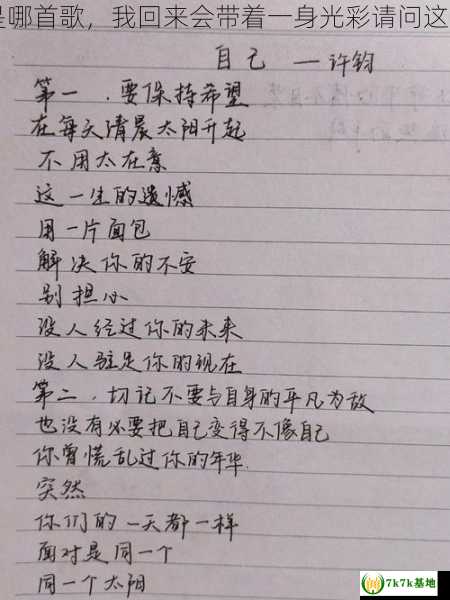 是哪首歌，我回来会带着一身光彩请问这
自己 —许钧
第一．要保持希望
在每天清晨太阳升起
不用太在意
这一生的遗憾
用一片面包
解决你的不安
别担心
没人经过你的未来
没人驻足你的现在
第二．切记不要与自身的平凡为敌
也没有必要把自己变得不像自己
你曾慌乱过你的年华
突然
你们的一天都一样
面对是同一个
同一个太阳
7k7k基地